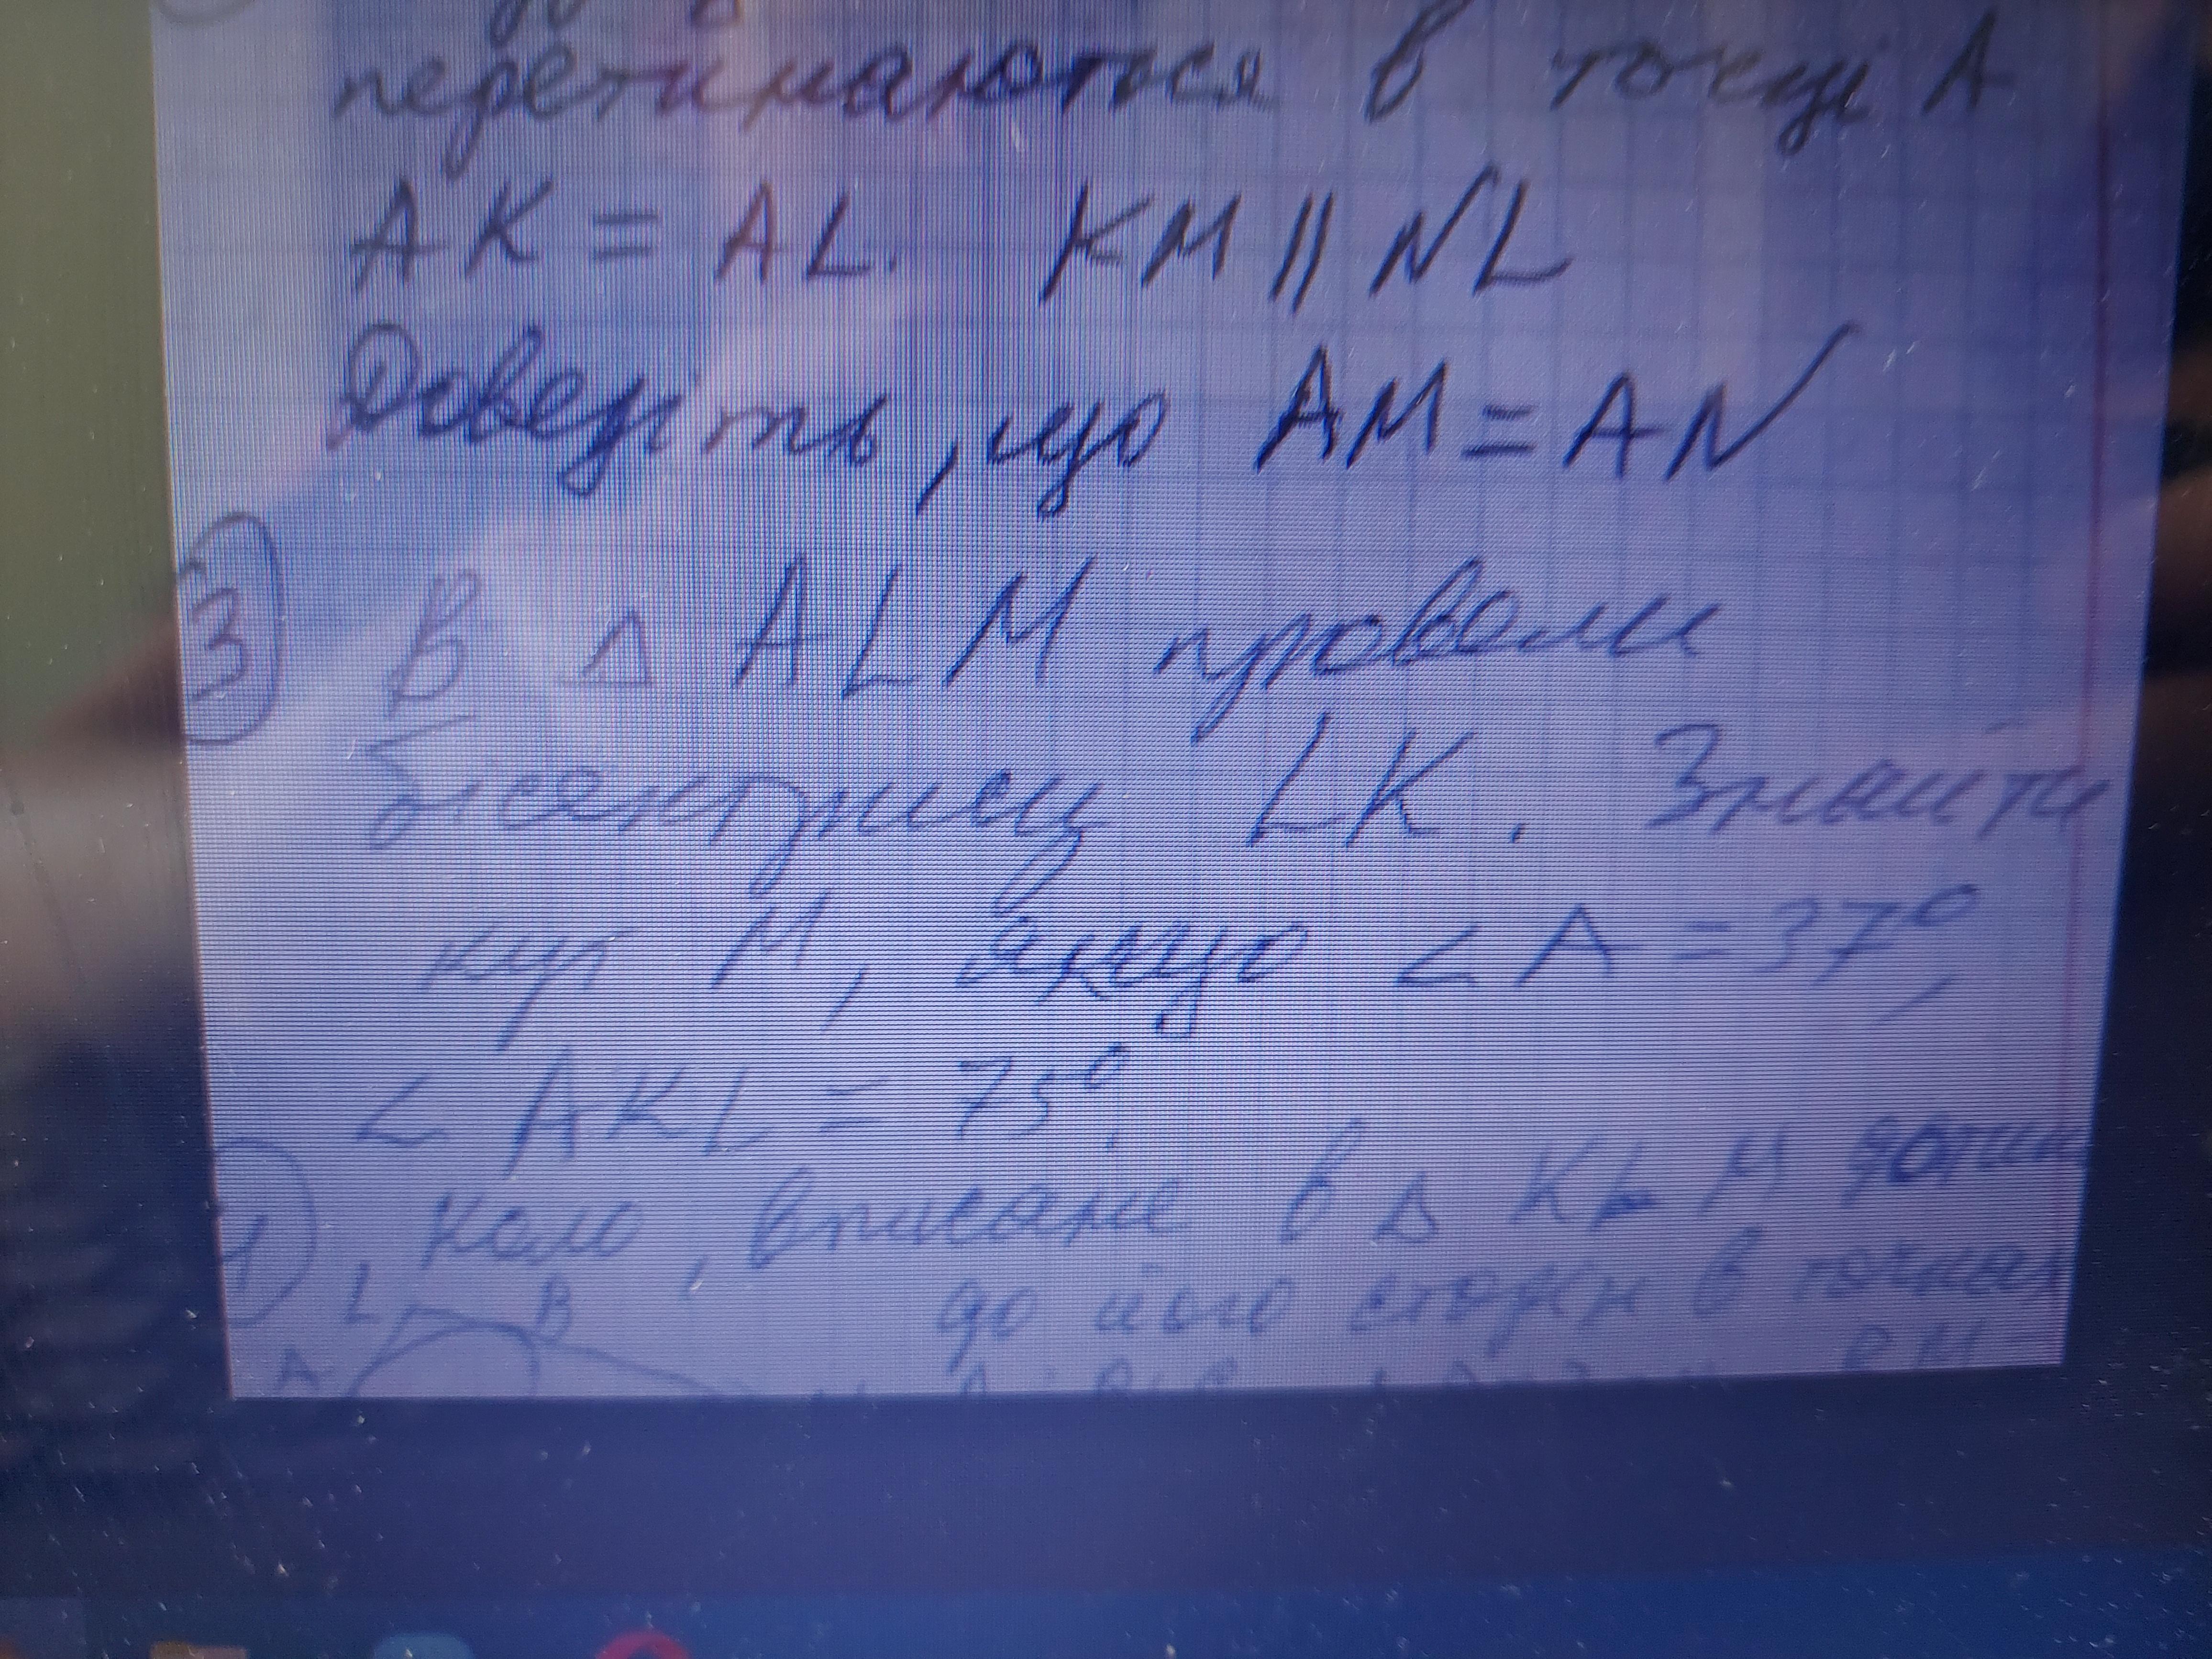 перетинаються в точці А
AK = AL. KM || NL
Доведіть, що AM = AN
3 В Δ ALM провели
бісектрису LK. Знайти
кут М, якщо < A = 37°,
< AKL = 75°.
4, Коло, вписане в Δ KLM дотик
L B до його сторін в точках
A